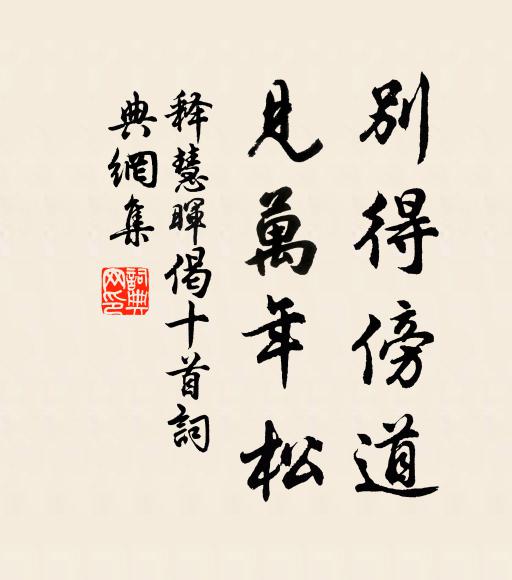 別得傍道
見萬年松
释慧暉偈十首詞
典網集
詞典网印